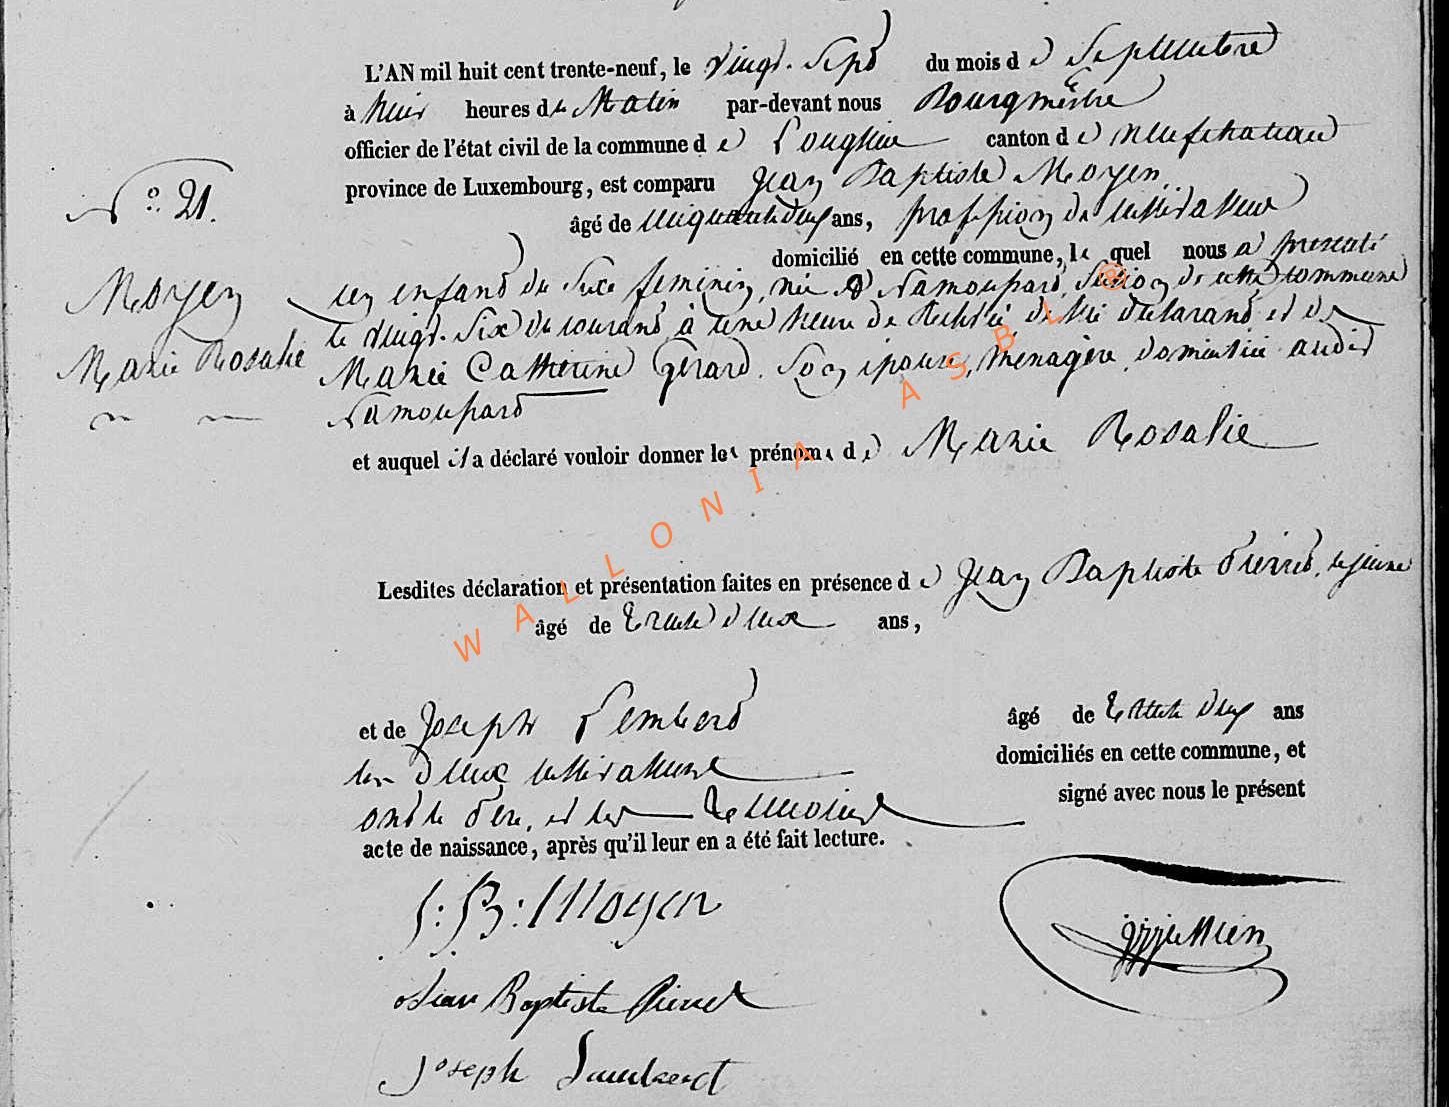 L'AN mil huit cent trente-neuf, le vingt-sept du mois de Septembre
à huit heures du Matin par-devant nous Bourgmestre
officier de l'état civil de la commune de Longlier canton de neufchateau
N° 21.
province de Luxembourg, est comparu Jean Baptiste Moyen
âgé de cinquante deux ans, profession de cultivateur
domicilié en cette commune, lequel nous a présenté
Moyen
un enfant du sexe feminin, née à Namoupard, section de cette commune
le vingt-six du courant à une heure de relevée, de lui déclarant et de
Marie Rosalie
Marie Catherine Gérard son épouse, ménagère, domiciliée audit
Namoupard
et auquel il a déclaré vouloir donner les prénoms de Marie Rosalie
Lesdites déclaration et présentation faites en présence de Jean Baptiste Pierret, le jeune
âgé de trente deux ans,
et de Joseph Lambert âgé de trente deux ans
les deux cultivateurs domiciliés en cette commune, et
ont le père et les témoins signé avec nous le présent
acte de naissance, après qu'il leur en a été fait lecture.
J: B: Moyen
Jean Baptiste Pierret
Joseph Lambert
WALLONIA ASBL ®